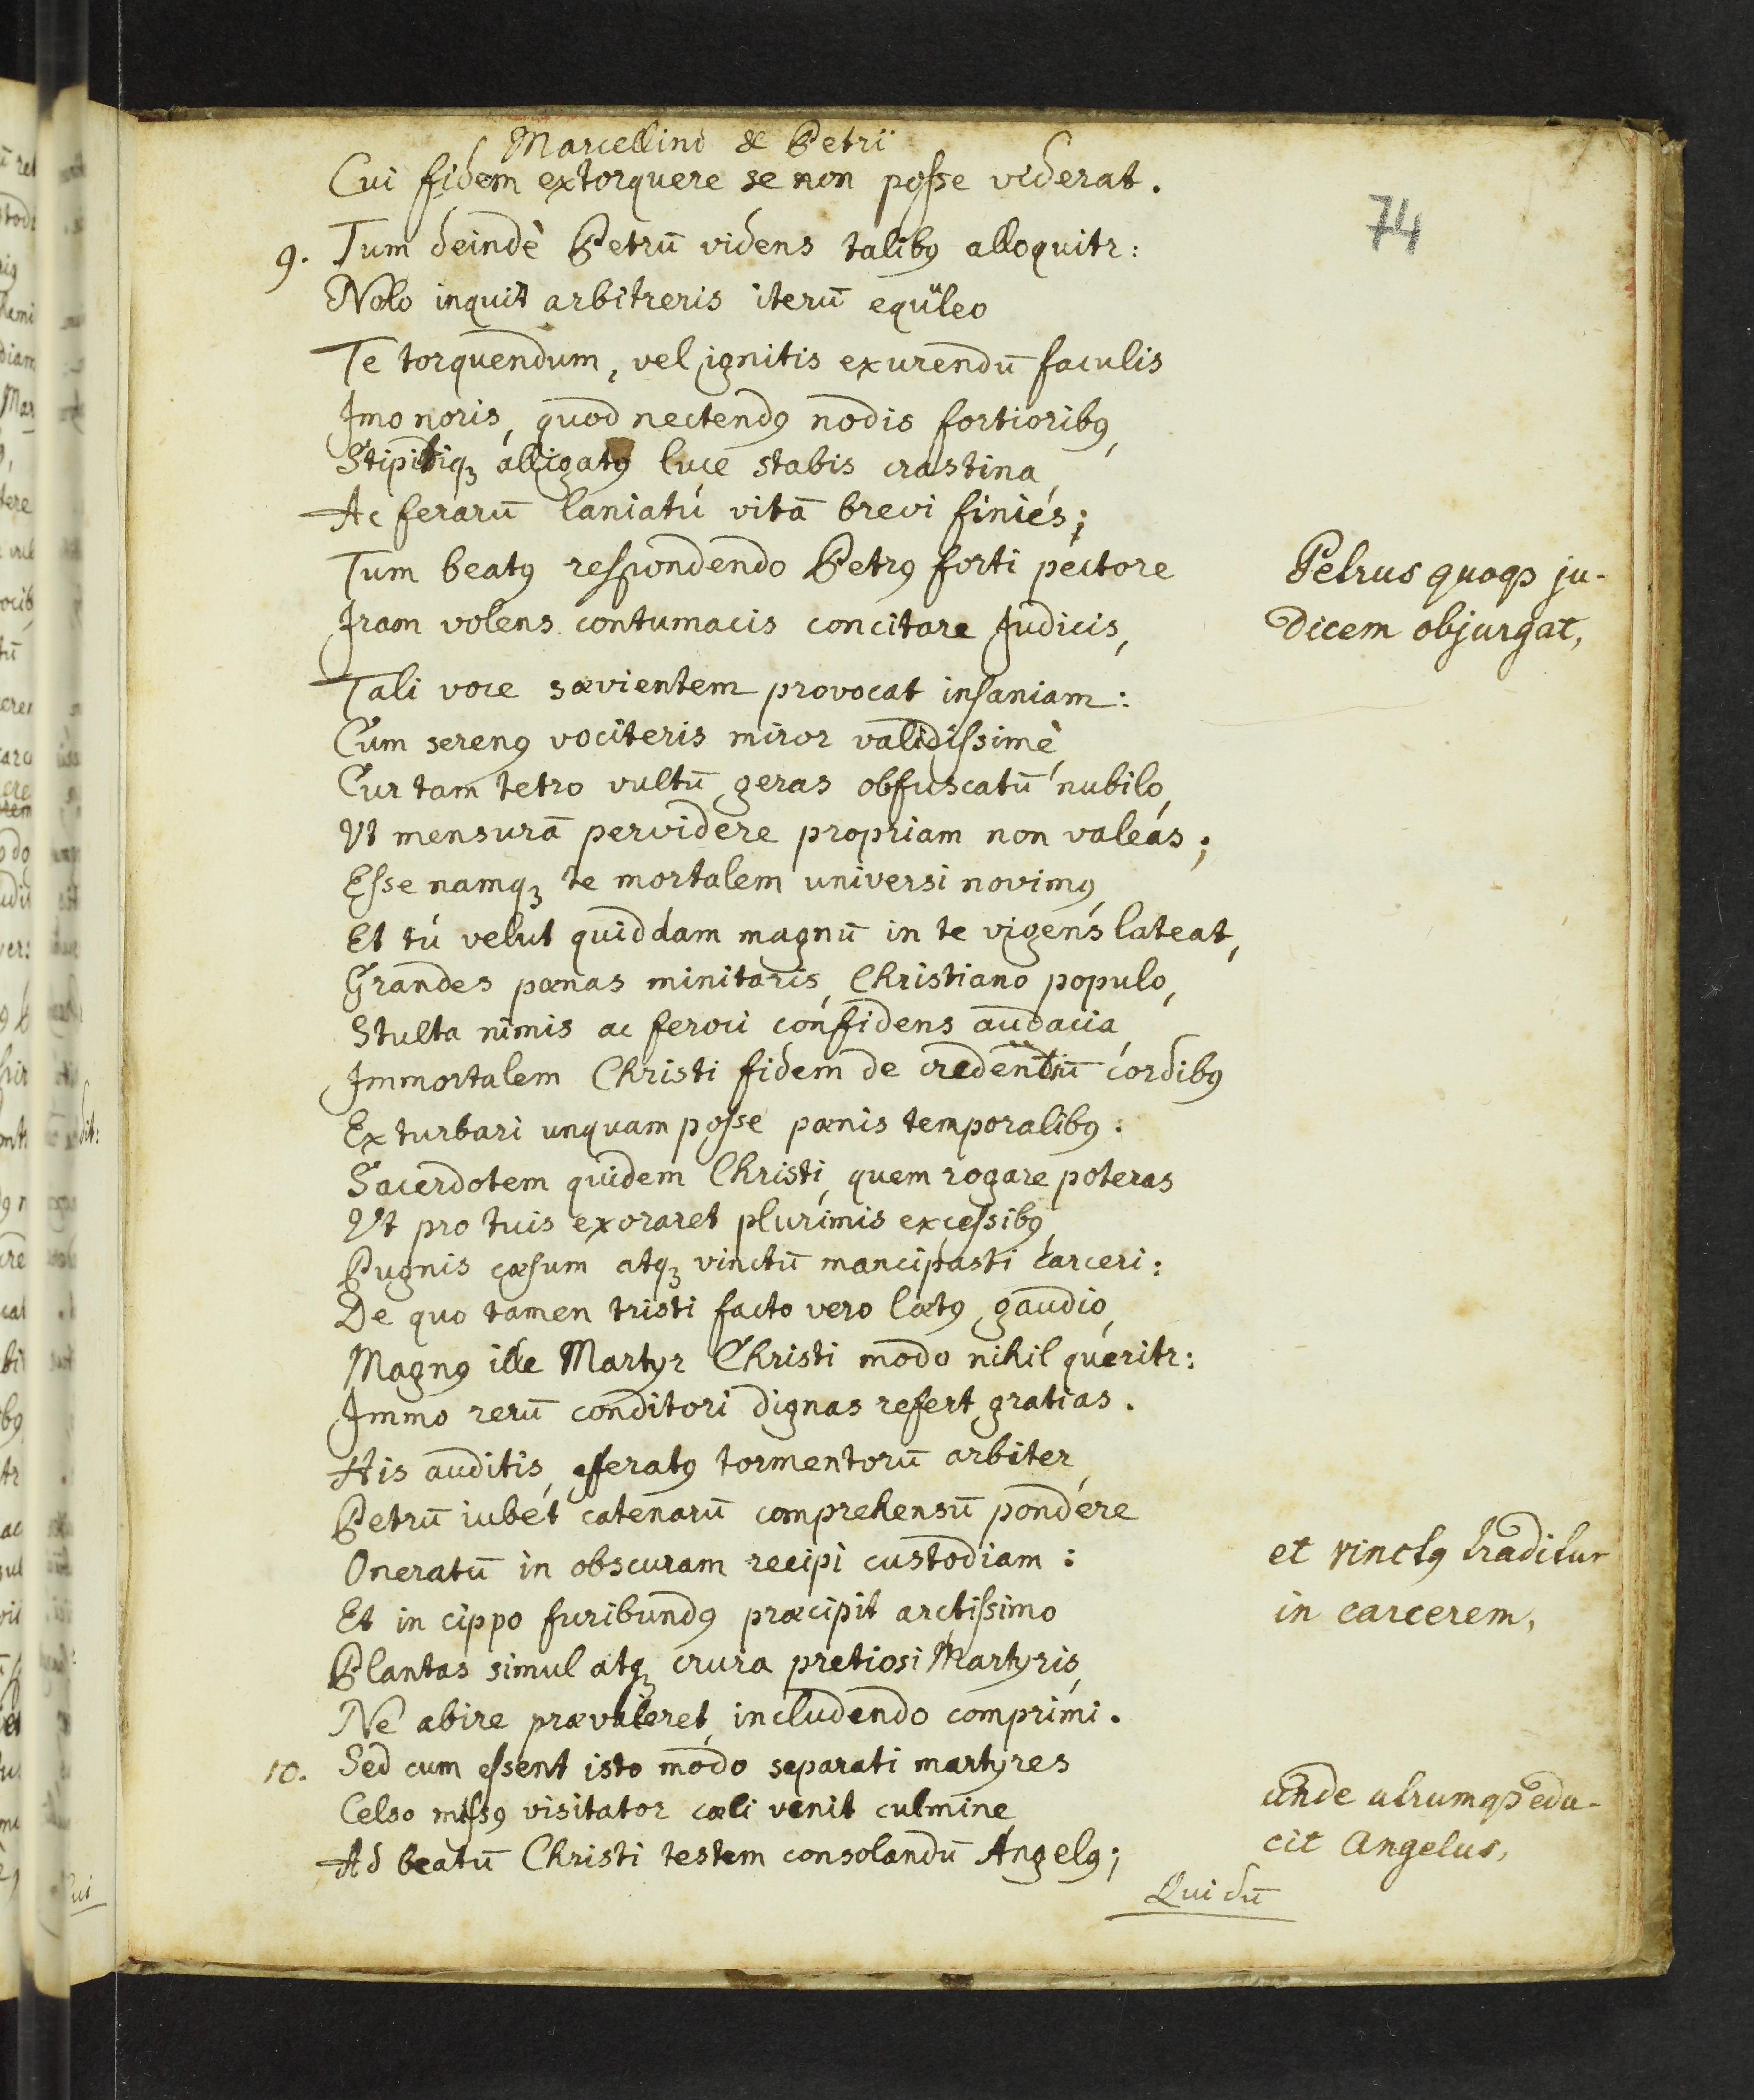 Marcellini & Petri
Cui fidem extorquere se non posse viderat.
74
9. Tum deindè Petrū videns talibꝰ alloquitr:
Nolo inquit arbitreris iterū equuleo
Te torquendum, vel ignitis exurendū faculis
Imo noris, quod nectendꝰ nodis fortioribꝰ,
Stipitiqꝫ alligatꝰ luce stabis crastina,
Ac ferarū laniatú vitā brevi finiés;
Tum beatꝰ respondendo Petrꝰ forti pectore
Petrus quoqꝫ ju-
Iram volens contumacis concitare Judicis,
dicem objurgat,
Tali voce sævientem provocat insaniam:
Cum serenꝰ vociteris miror validissimè,
Cur tam tetro vultū geras obfuscatū nubilo,
Vt mensurā pervidere propriam non valeas;
Esse namqꝫ te mortalem universi novimꝰ,
Et tú velut quiddam magnū in te vigens lateat,
Grandes pœnas minitaris, Christiano populo,
Stulta nimis ac feroci confidens audacia,
Immortalem Christi fidem de credentiū cordibꝰ
Exturbari unquam posse pœnis temporalibꝰ:
Sacerdotem quidem Christi, quem rogare poteras
Vt pro tuis exoraret plurimis excessibꝰ,
Pugnis cæsum atqꝫ vinctū mancipasti carceri:
De quo tamen tristi facto vero lætꝰ gaudio,
Magnꝰ ille Martyr Christi modo nihil queritr:
Immo rerū conditori dignas refert gratias.
His auditis, efferatꝰ tormentorū arbiter,
Petrū iubet catenarū comprehensū pondere
Oneratū in obscuram recipi custodiam:
et vinctꝰ traditur
Et in cippo furibundꝰ præcipit arctissimo
in carcerem,
Plantas simul atqꝫ crura pretiosi Martyris,
Ne abire prævaleret, includendo comprimi.
10. Sed cum essent isto modo separati martyres
Celso missꝰ visitator cœli venit culmine,
unde utrumqꝫ edu-
Ad beatū Christi testem consolandū Angelꝰ;
cit Angelus,
Qui dū